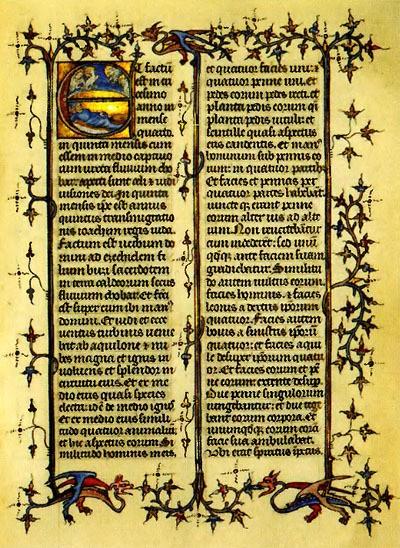 Et factū
est in tri
cesimo
anno in
mense
quarto
in quinta mensis cum
essem in medio captiuo
rum iuxta fluuium cho
bar: aperti sunt celi & uidi
uisiones dei. In quinta
mensis ipse est annus
quintus transmigratio
nis ioachim regis iuda.
Factum est uerbum do
mini ad ezechielem fi
lium buzi sacerdotem
in terra caldeorum secus
fluuium chobar: et fcā
est super eum ibi man'
domini. Et uidi et ecce
uentus turbinis uenie
bat ab aquilone & nu
bes magna et ignis in
uoluens et splendor in
circuitu eius. et ex me
dio eius quasi species
electri id ē de medio ignis
et ex medio eius simili
tudo quatuor animaliū:
et hic aspectus eorum. Si
militudo hominis in eis.
et quatuor facies uni: &
et quatuor penne uni. et
pedes eorum pedes recti et
planta pedis eorum q̄i
planta pedis uituli: et
scintille quasi aspectus
eris candentis. et man'
hominum sub pennis eo
rum: in quatuor partibꝫ
Et facies et pennas per
quatuor partes habebāt.
iuncte qꝫ erant penne
eorum alterius ad alte
rum. Non reuertebātur
cum incederēt: sed unū
qdqꝫ ante faciem suam
gradiebatur. Similitu
do autem uultus eorum.
facies hominis. & facies
leonis a dextris ipsorum
quatuor. Facies autem
bouis a sinistris ipsorū
quatuor: et facies aqui
le desuper ipsorum quatu
or. Et facies eorum et pē
ne eorum: extente desup.
Due penne singulorum
iungebantur: et due tege
bant corpora eorum. et
unumqdqꝫ eorum corā
facie sua ambulabat.
Vbi erat spiritus īpetus.